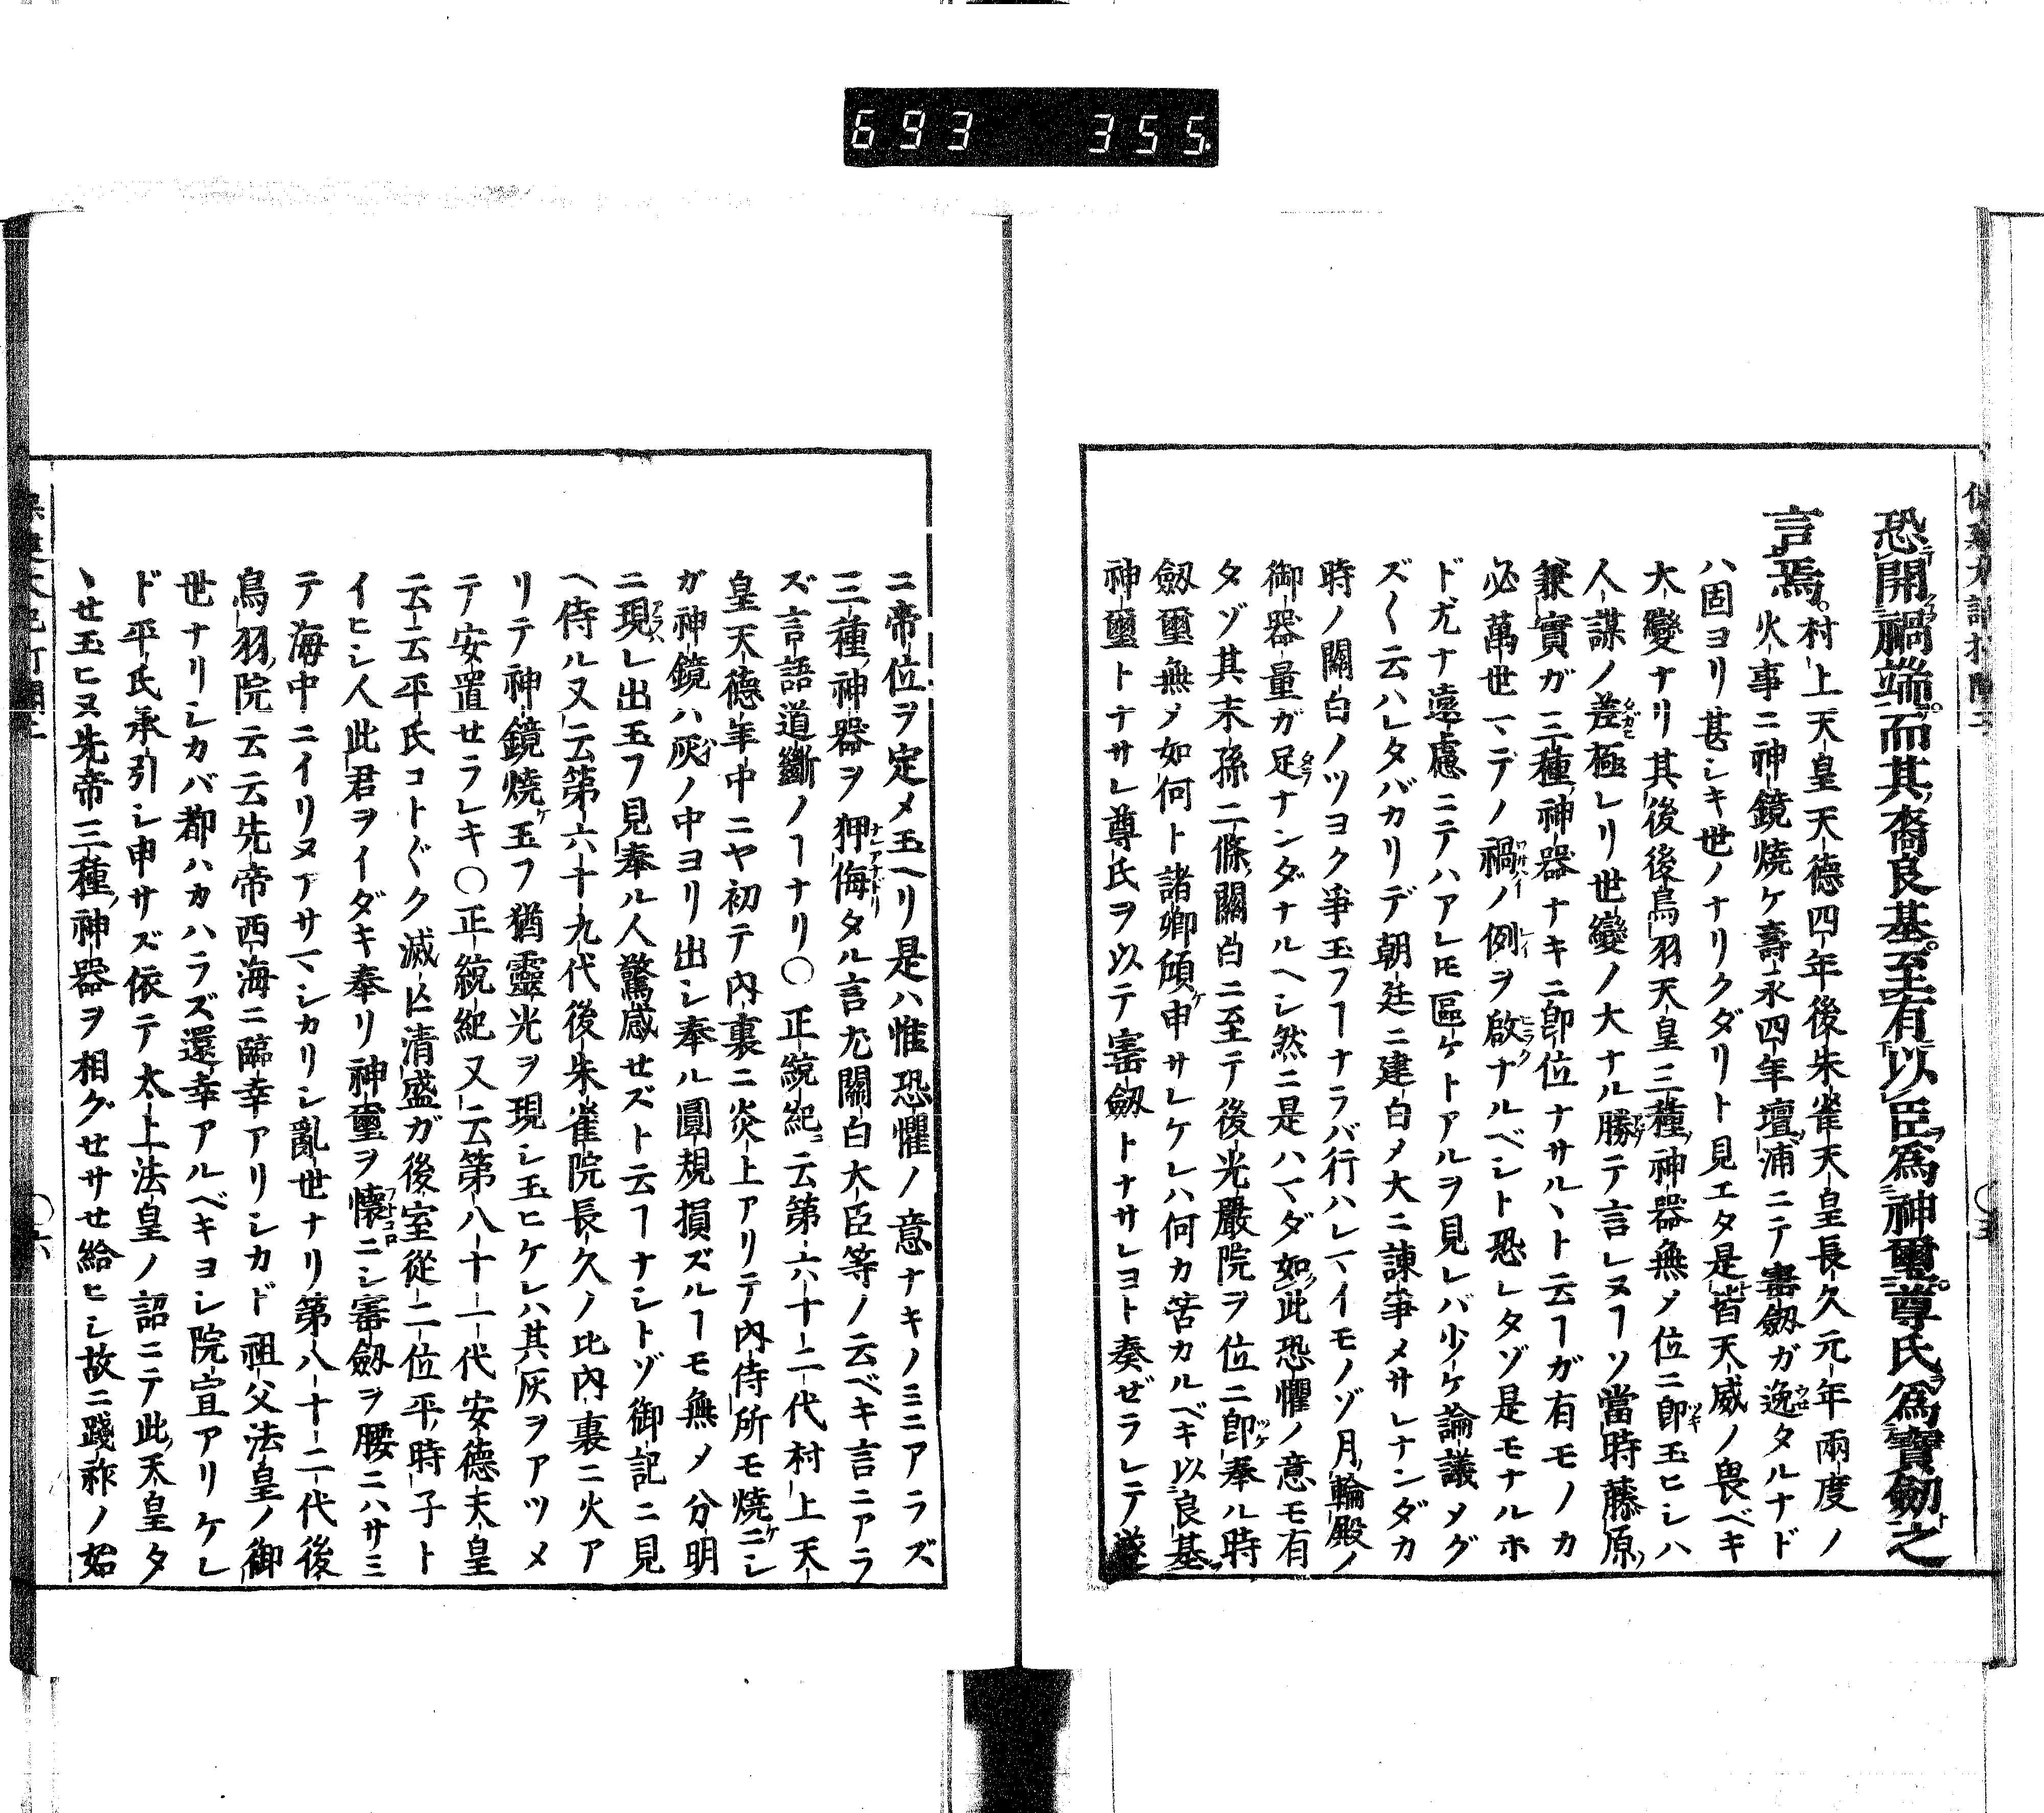 693 355
恐開禍端而其裔良基至有以臣為神璽尊氏為寶劔之
言焉村上天皇天德四年後朱雀天皇長久元年兩度ノ
火事ニ神鏡燒ケ壽永四年壇浦ニテ寳劔ガ逸タルナド
ハ固ヨリ甚シキ世ノナリクダリト見エタ是皆天威ノ畏ベキ
大變ナリ其後後鳥羽天皇三種神器無メ位ニ卽玉ヒシハ
人謀ノ差極レリ世變ノ大ナル勝テ言レヌヿソ當時藤原
兼實ガ三種神器ナキニ卽位ナサルヽト云ヿガ有モノカ
必萬世マデノ禍ノ例ヲ啟ナルベシト恐レタゾ是モナルホ
ド尤ナ遠慮ニテハアレ𪜈區ケトアルヲ見レバ少ケ論議メグ
ズ〱云ハレタバカリデ朝廷ニ建白メ大ニ諫爭メサレナンダカ
時ノ關白ノツヨク爭玉フヿナラバ行ハレマイモノゾ月輪殿ノ
御器量ガ足ナンダナルヘシ然ニ是ハマダ如此恐懼ノ意モ有
タゾ其末孫二條關白ニ至テ後光嚴院ヲ位ニ卽奉ル時
劔璽無メ如何ト諸卿傾申サレケレハ何カ苦カルベキ以良基
神璽トナサレ尊氏ヲ以テ寳劔トナサレヨト奏ゼラレテ遂
ニ帝位ヲ定メ玉ヘリ是ハ惟恐懼ノ意ナキノミニアラズ
三種神器ヲ狎侮タル言尤關白大臣等ノ云ベキ言ニアラ
ズ言語道斷ノヿナリ〇正統紀ニ云第六十二代村上天
皇天德年中ニヤ初テ內裏ニ炎上アリテ內侍所モ燒ニシ
ガ神鏡ハ灰ノ中ヨリ出シ奉ル圓規損ズルヿモ無メ分明
ニ現レ出玉フ見奉ル人驚感せズト云ヿナシトゾ御記ニ見
ヘ侍ル又云第六十九代後朱雀院長久ノ比內裏ニ火ア
リテ神鏡燒玉フ猶靈光ヲ現シ玉ヒケレハ其灰ヲアツメ
テ安置せラレキ〇正統紀又云第八十一代安德天皇
云云平氏コトぐク滅亡清盛ガ後室從二位平時子ト
イヒシ人此君ヲイダキ奉リ神璽ヲ懷ニシ寳劔ヲ腰ニハサミ
テ海中ニイリヌアサマシカリシ亂世ナリ第八十二代後
鳥羽院云云先帝西海ニ臨幸アリシカド祖父法皇ノ御
世ナリシカバ都ハカハラズ還幸アルベキヨシ院宣アリケレ
ド平氏承引シ申サズ依テ太上法皇ノ詔ニテ此天皇タ
ヽせ玉ヒヌ先帝三種神器ヲ相グせサせ給ヒシ故ニ踐祚ノ始